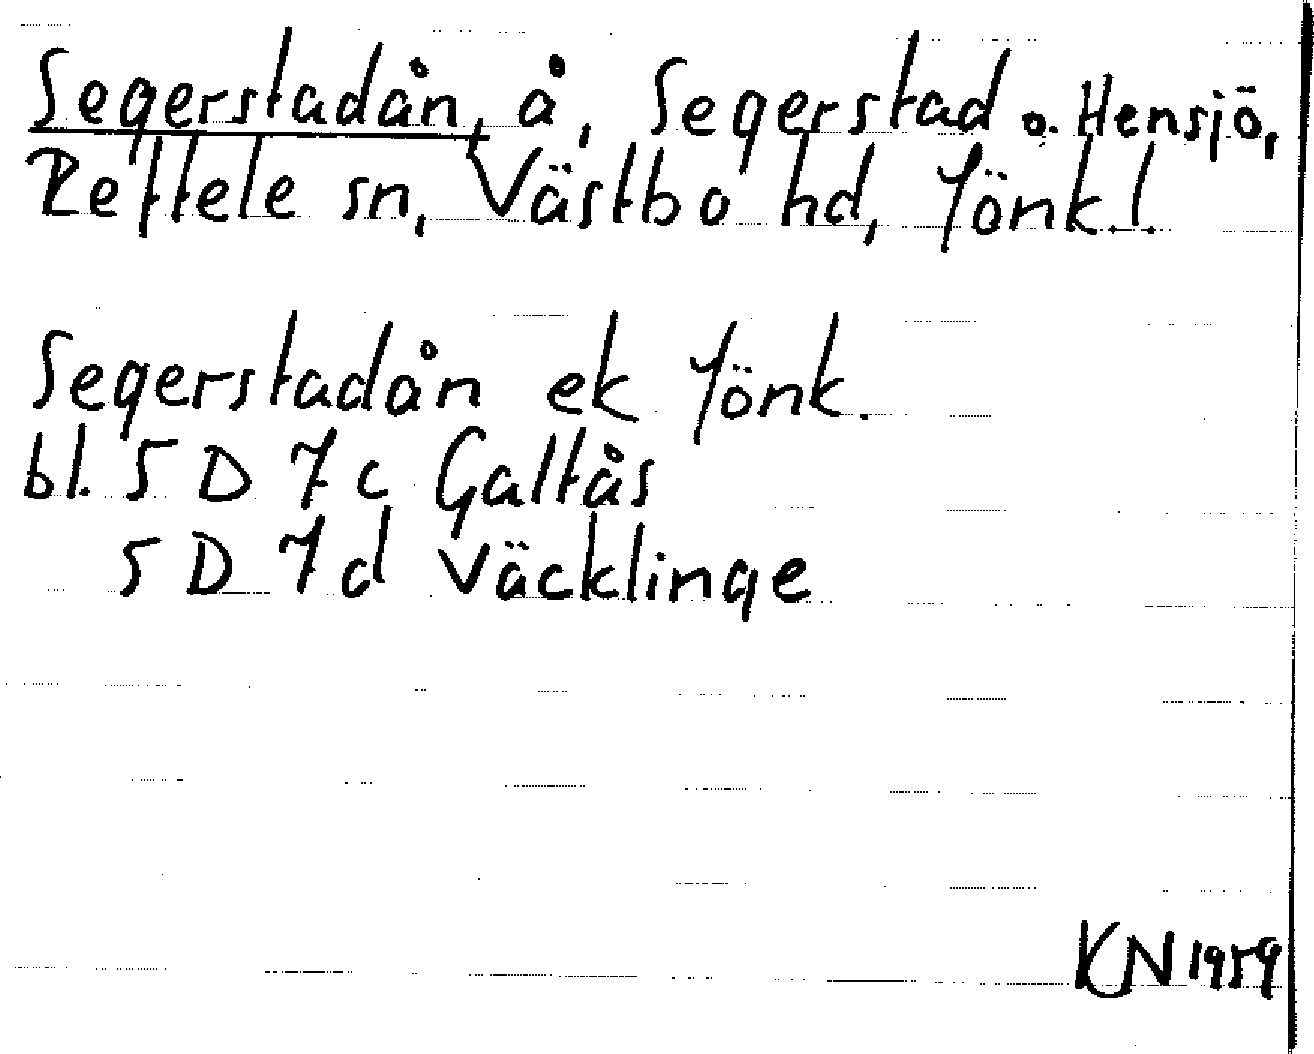 Segerstadån, å, Segerstad o. Hensjö,
Reftele sn, Västbo hd, Jönk.l.
Segerstadån ek Jönk.
bl. 5 D 7c Galtås
5 D 7d Väcklinge
KN 1959